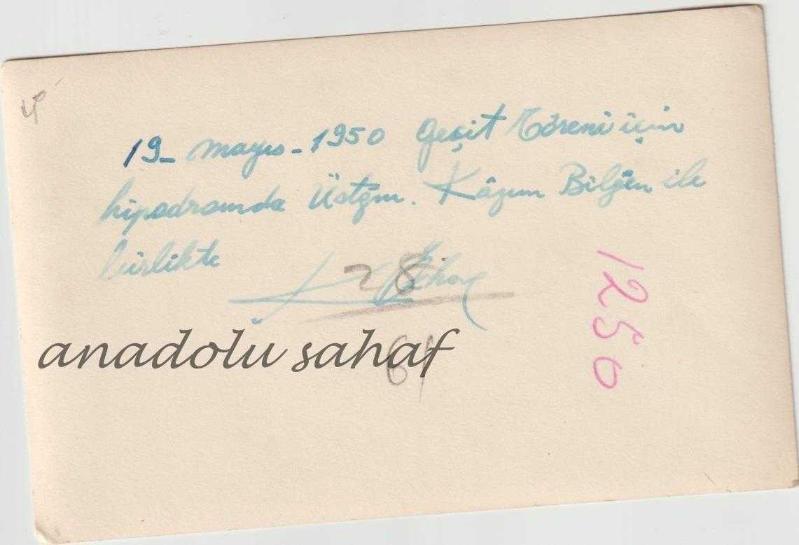 19_ mayıs - 1950 Geçit Töreni için
hipodromda Üstğm. Kâzım Bilğen ile
birlikte
28
1250
anadolu sahaf